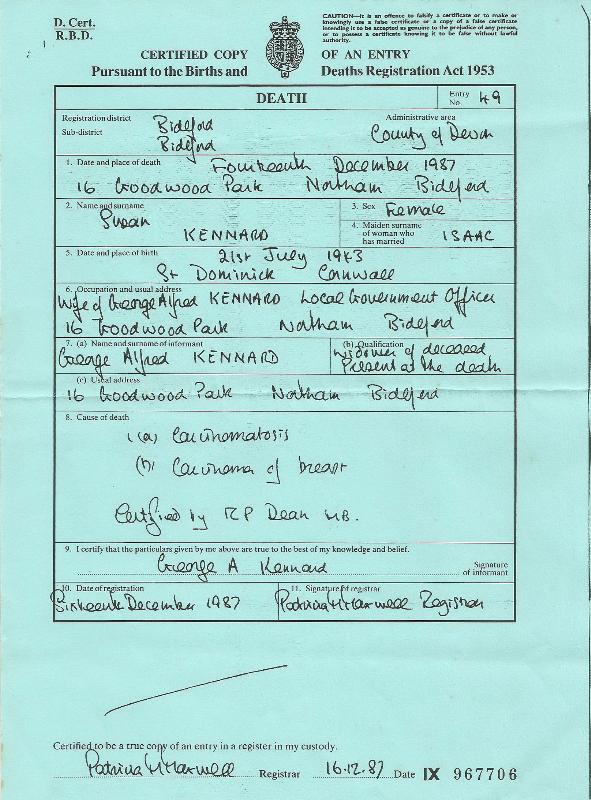 D. Cert.
R.B.D.
CAUTION—It is an offence to falsify a certificate or to make or
knowingly use a false certificate or a copy of a false certificate
intending it to be accepted as genuine to the prejudice of any person,
or to possess a certificate knowing it to be false without lawful
authority.
CERTIFIED COPY OF AN ENTRY
Pursuant to the Births and Deaths Registration Act 1953
DEATH
Entry No. 49
Registration district Bideford
Administrative area
Sub-district Bideford
County of Devon
1. Date and place of death Fourteenth December 1987
16 Goodwood Park Northam Bideford
2. Name and surname
Susan
KENNARD
3. Sex Female
4. Maiden surname
of woman who
has married
ISAAC
5. Date and place of birth 21st July 1943
St Dominick Cornwall
6. Occupation and usual address
Wife of George Alfred KENNARD Local Government Officer
16 Goodwood Park Northam Bideford
7. (a) Name and surname of informant
George Alfred KENNARD
(b) Qualification
Widower of deceased
Present at the death
(c) Usual address
16 Goodwood Park Northam Bideford
8. Cause of death
1(a) Carcinomatosis
(b) Carcinoma of breast
Certified by R P Dean MB.
9. I certify that the particulars given by me above are true to the best of my knowledge and belief.
George A Kennard
Signature
of informant
10. Date of registration
Sixteenth December 1987
11. Signature of registrar
Patricia M Maxwell Registrar
Certified to be a true copy of an entry in a register in my custody.
Patricia M Maxwell Registrar 16.12.87 Date IX 967706